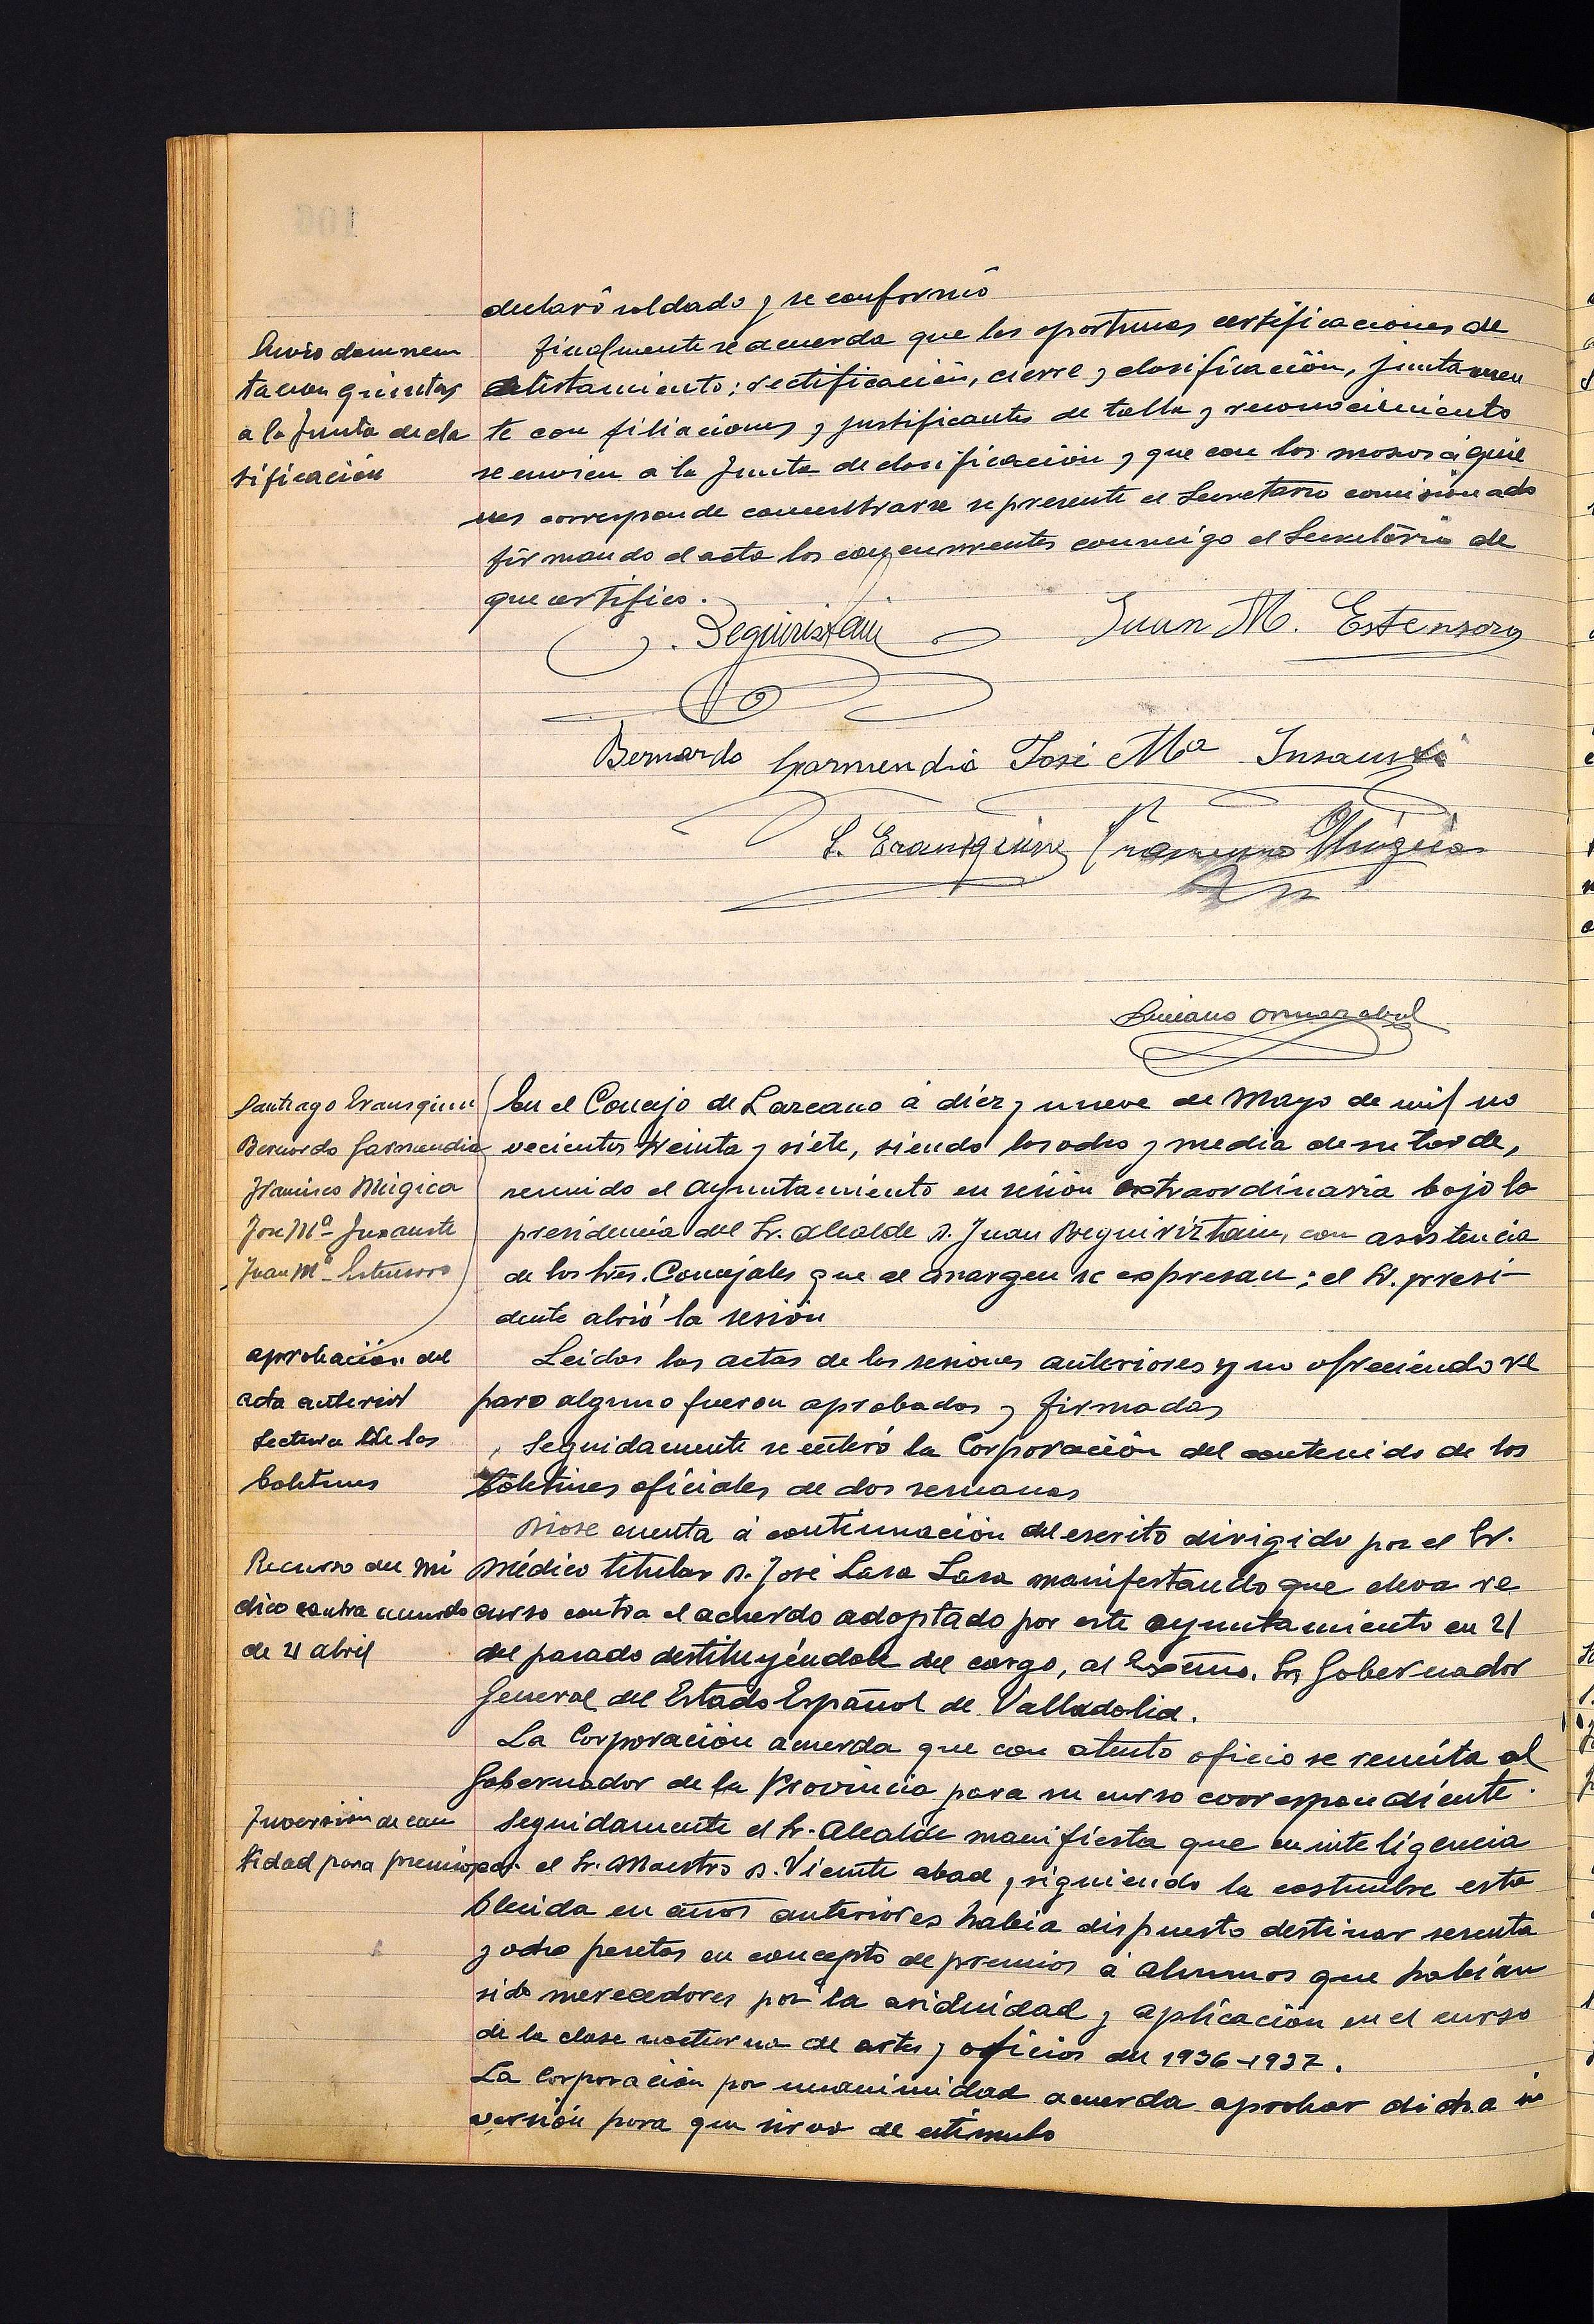 declaró soldado y se conformó
Envio documen
tacion quintas
a la Junta de cla
sificación
finalmente se acuerda que las oportunas certificaciones de
alistamiento; rectificación, cierre y clasificación, juntamen
te con filiaciones y justificantes de talla y reconocimiento
se envien a la Junta de clasificación y que con los mozos á quie
nes corresponde concentrarse se presente el Secretario comisionado
firmando el acta los concurrentes conmigo el Secretario de
que certifico.
J. Beguiristain
Juan M. Estensoro
Bernardo Garmendia José Mª Insausti
S. Erausquin Francisco Múgica
Luciano Ormazabal
Santiago Erausquin
Bernardo Garmendia
Francisco Múgica
Jose Mª Insausti
Juan Mª Estensoro
En el Concejo de Lazcano á diez y nueve de Mayo de mil no
vecientos treinta y siete, siendo las ocho y media de su tarde,
reunido el Ayuntamiento en sesión extraordinaria bajo la
presidencia del Sr. Alcalde D. Juan Beguiriztain, con asistencia
de los Sres. Concejales que al margen se expresan; el Sr. presi-
dente abrió la sesión
aprobación del
acta anterior
Leidas las actas de las sesiones anteriores y no ofreciendo re
paro alguno fueron aprobadas y firmadas
Lectura de los
boletines
Seguidamente se enteró la Corporación del contenido de los
boletines oficiales de dos semanas
Recurso del mé
dico contra acuerdo
de 21 abril
Diose cuenta á continuación del escrito dirigido por el Sr.
Médico titular D. José Lasa Lasa manifestando que eleva re
curso contra el acuerdo adoptado por este ayuntamiento en 21
del pasado destituyéndole del cargo, al Excmo. Sr. Gobernador
General del Estado Español de Valladolid.
La Corporación acuerda que con atento oficio se remita al
Gobernador de la Provincia para su curso correspondiente.
Inversión de can
tidad para premios
Seguidamente el Sr. Alcalde manifiesta que en inteligencia
con el Sr. Maestro D. Vicente Abad, siguiendo la costumbre esta
blecida en años anteriores habia dispuesto destinar sesenta
y ocho pesetas en concepto de premios á alumnos que habían
sido merecedores por la asiduidad y aplicación en el curso
de la clase nocturna de artes y oficios del 1936-1937.
La Corporación por unanimidad acuerda aprobar dicha in
versión para que sirva de estímulo